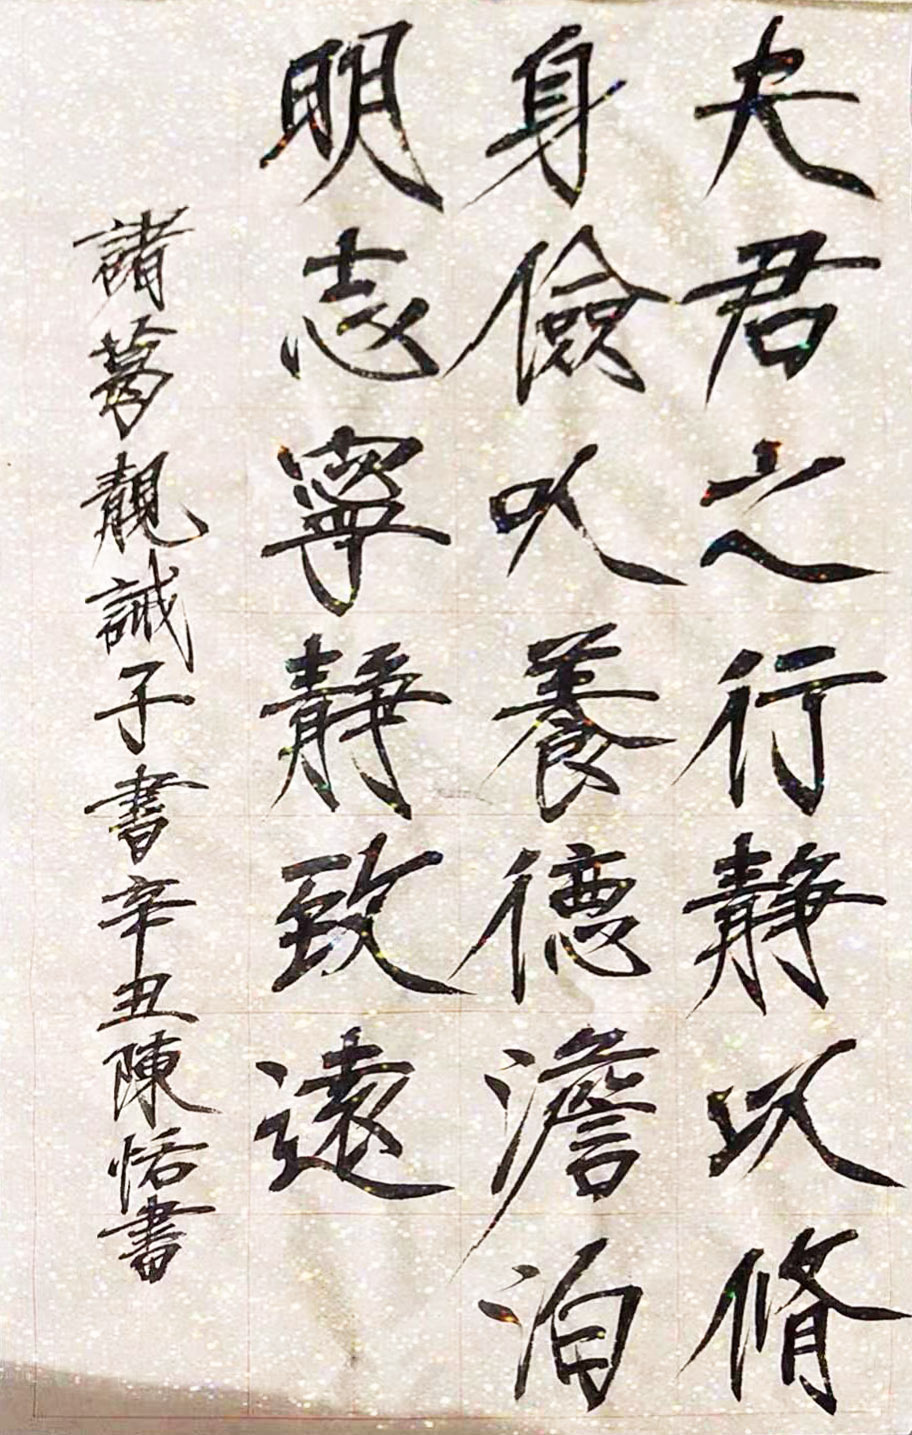 夫君之行靜以脩
身儉以養德澹泊
明志寧靜致遠
諸葛靚誡子書辛丑陳恬書